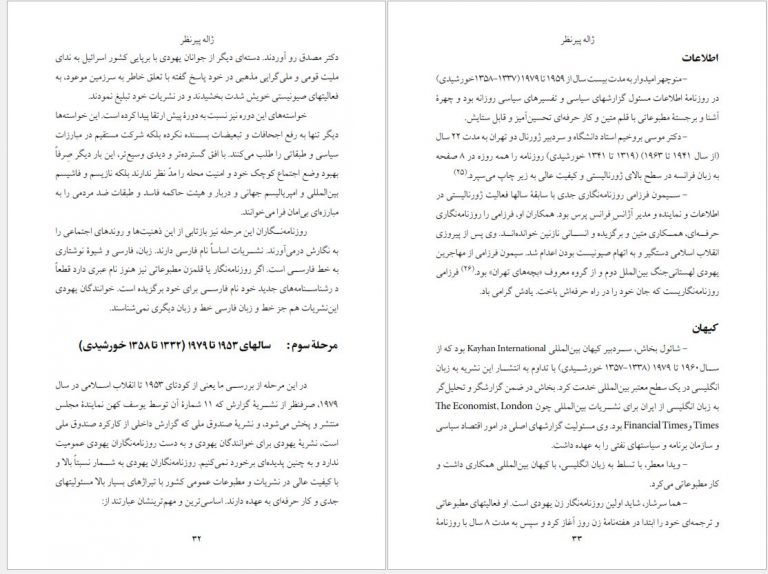 ژاله پیرنظر
اطلاعات
– منوچهر امیدوار به مدت بیست سال از ۱۹۵۹ تا ۱۹۷۹ (۱۳۳۷–۱۳۵۸خورشیدی)
در روزنامهٔ اطلاعات مسئول گزارشهای سیاسی و تفسیرهای سیاسی روزانه بود و چهرهٔ
آشنا و برجستهٔ مطبوعاتی با قلم متین و کار حرفه‌ای تحسین‌آمیز و قابل ستایش.
– دکتر موسی بروخیم استاد دانشگاه و سردبیر ژورنال دو تهران به مدت ۲۲ سال
(از سال ۱۹۴۱ تا ۱۹۶۳) (۱۳۱۹ تا ۱۳۴۱ خورشیدی) روزنامه را همه روزه در ۸ صفحه
به زبان فرانسه در سطح بالای ژورنالیستی و کیفیت عالی به زیر چاپ می‌سپرد.(۲۵)
– سیمون فرزامی روزنامه‌نگاری جدی با سابقهٔ سالها فعالیت ژورنالیستی در
اطلاعات و نماینده و مدیر آژانس فرانس پرس بود. همکاران او، فرزامی را روزنامه‌نگاری
حرفه‌ای، همکاری متین و برگزیده و انسانی نازنین خوانده‌اند. وی پس از پیروزی
انقلاب اسلامی دستگیر و به اتهام صیونیست بودن اعدام شد. سیمون فرزامی از مهاجرین
یهودی لهستانی‌جنگ بین‌الملل دوم و از گروه معروف «بچه‌های تهران» بود.(۲۶) فرزامی
روزنامه‌نگاریست که جان خود را در راه حرفه‌اش باخت. یادش گرامی باد.
کیهان
– شائول بخاش، سردبیر کیهان بین‌المللی Kayhan International بود که از
سال۱۹۶۰ تا ۱۹۷۹ (۱۳۳۸–۱۳۵۷ خورشیدی) با تداوم به انتشار این نشریه به زبان
انگلیسی در یک سطح معتبر بین‌المللی خدمت کرد. بخاش در ضمن گزارشگر و تحلیل‌گر
به زبان انگلیسی از ایران برای نشریات بین‌المللی چون The Economist, London
Times و Financial Times بود. وی مسئولیت گزارشهای اصلی در امور اقتصاد سیاسی
و سازمان برنامه و سیاستهای نفتی را به عهده داشت.
– ویدا معطر، با تسلط به زبان انگلیسی، با کیهان بین‌المللی همکاری داشت و
کار مطبوعاتی می‌کرد.
– هما سرشار، شاید اولین روزنامه‌نگار زن یهودی است. او فعالیتهای مطبوعاتی
و ترجمه‌ای خود را ابتدا در هفته‌نامهٔ زن روز آغاز کرد و سپس به مدت ۸ سال با روزنامهٔ
۳۳
ژاله پیرنظر
دکتر مصدق رو آوردند. دسته‌ای دیگر از جوانان یهودی با برپایی کشور اسرائیل به ندای
ملیت قومی و ملی‌گرایی مذهبی در خود پاسخ گفته با تعلق خاطر به سرزمین موعود، به
فعالیتهای صیونیستی خویش شدت بخشیدند و در نشریات خود تبلیغ نمودند.
خواسته‌های این دوره نیز نسبت به دورهٔ پیش ارتقا پیدا کرده است. این خواسته‌ها
دیگر تنها به رفع اجحافات و تبعیضات بسنده نکرده بلکه شرکت مستقیم در مبارزات
سیاسی و طبقاتی را طلب می‌کنند. با افق گسترده‌تر و دیدی وسیع‌تر، این بار دیگر صِرفاً
بهبود وضع اجتماع کوچک خود و امنیت محله را مدّ نظر ندارند بلکه نازیسم و فاشیسم
بین‌المللی و امپریالیسم جهانی و دربار و هیئت حاکمه فاسد و طبقات ضد مردمی را به
مبارزه‌ای بی‌امان فرا می‌خوانند.
روزنامه‌نگاران این مرحله نیز بازتابی از این ذهنیت‌ها و روندهای اجتماعی را
به نگارش درمی‌آورند. نشریات اساساً نام فارسی دارند. زبان، فارسی و شیوهٔ نوشتاری
به خط فارسی است. اگر روزنامه‌نگار یا قلمزن مطبوعاتی نیز هنوز نام عبری دارد قطعاً
د رشناسنامه‌های جدید خود نام فارسی برای خود برگزیده است. خوانندگان یهودی
این‌نشریات هم جز خط و زبان فارسی خط و زبان دیگری نمی‌شناسند.
مرحلهٔ سوم: سالهای ۱۹۵۳ تا ۱۹۷۹ (۱۳۳۲ تا ۱۳۵۸ خورشیدی)
در این مرحله از بررسی ما یعنی از کودتای ۱۹۵۳ تا انقلاب اسلامی در سال
۱۹۷۹، صرفنظر از نشریهٔ گزارش که ۱۱ شمارهٔ آن توسط یوسف کهن نمایندهٔ مجلس
منتشر و پخش می‌شود، و نشریهٔ صندوق ملی که گزارش داخلی از کارکرد صندوق ملی
است، نشریهٔ یهودی برای خوانندگان یهودی و به دست روزنامه‌نگاران یهودی عمومیت
ندارد و به چنین پدیده‌ای برخورد نمی‌کنیم. روزنامه‌نگاران یهودی به شمار نسبتاً بالا و
با کیفیت عالی در نشریات و مطبوعات عمومی کشور با تیراژهای بسیار بالا مسئولیتهای
جدی و کار حرفه‌ای به عهده دارند. اساسی‌ترین و مهم‌ترینشان عبارتند از:
۳۲